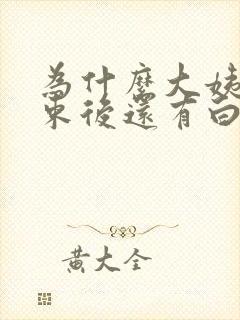 為什麼大姨
束後還有白
黃大全